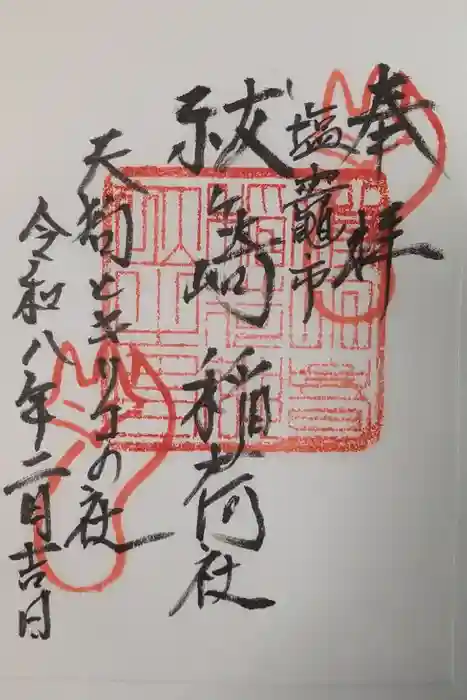 奉拝
塩竈市
祓ヶ崎稲荷社
天狗とキツネの社
令和八年二月吉日